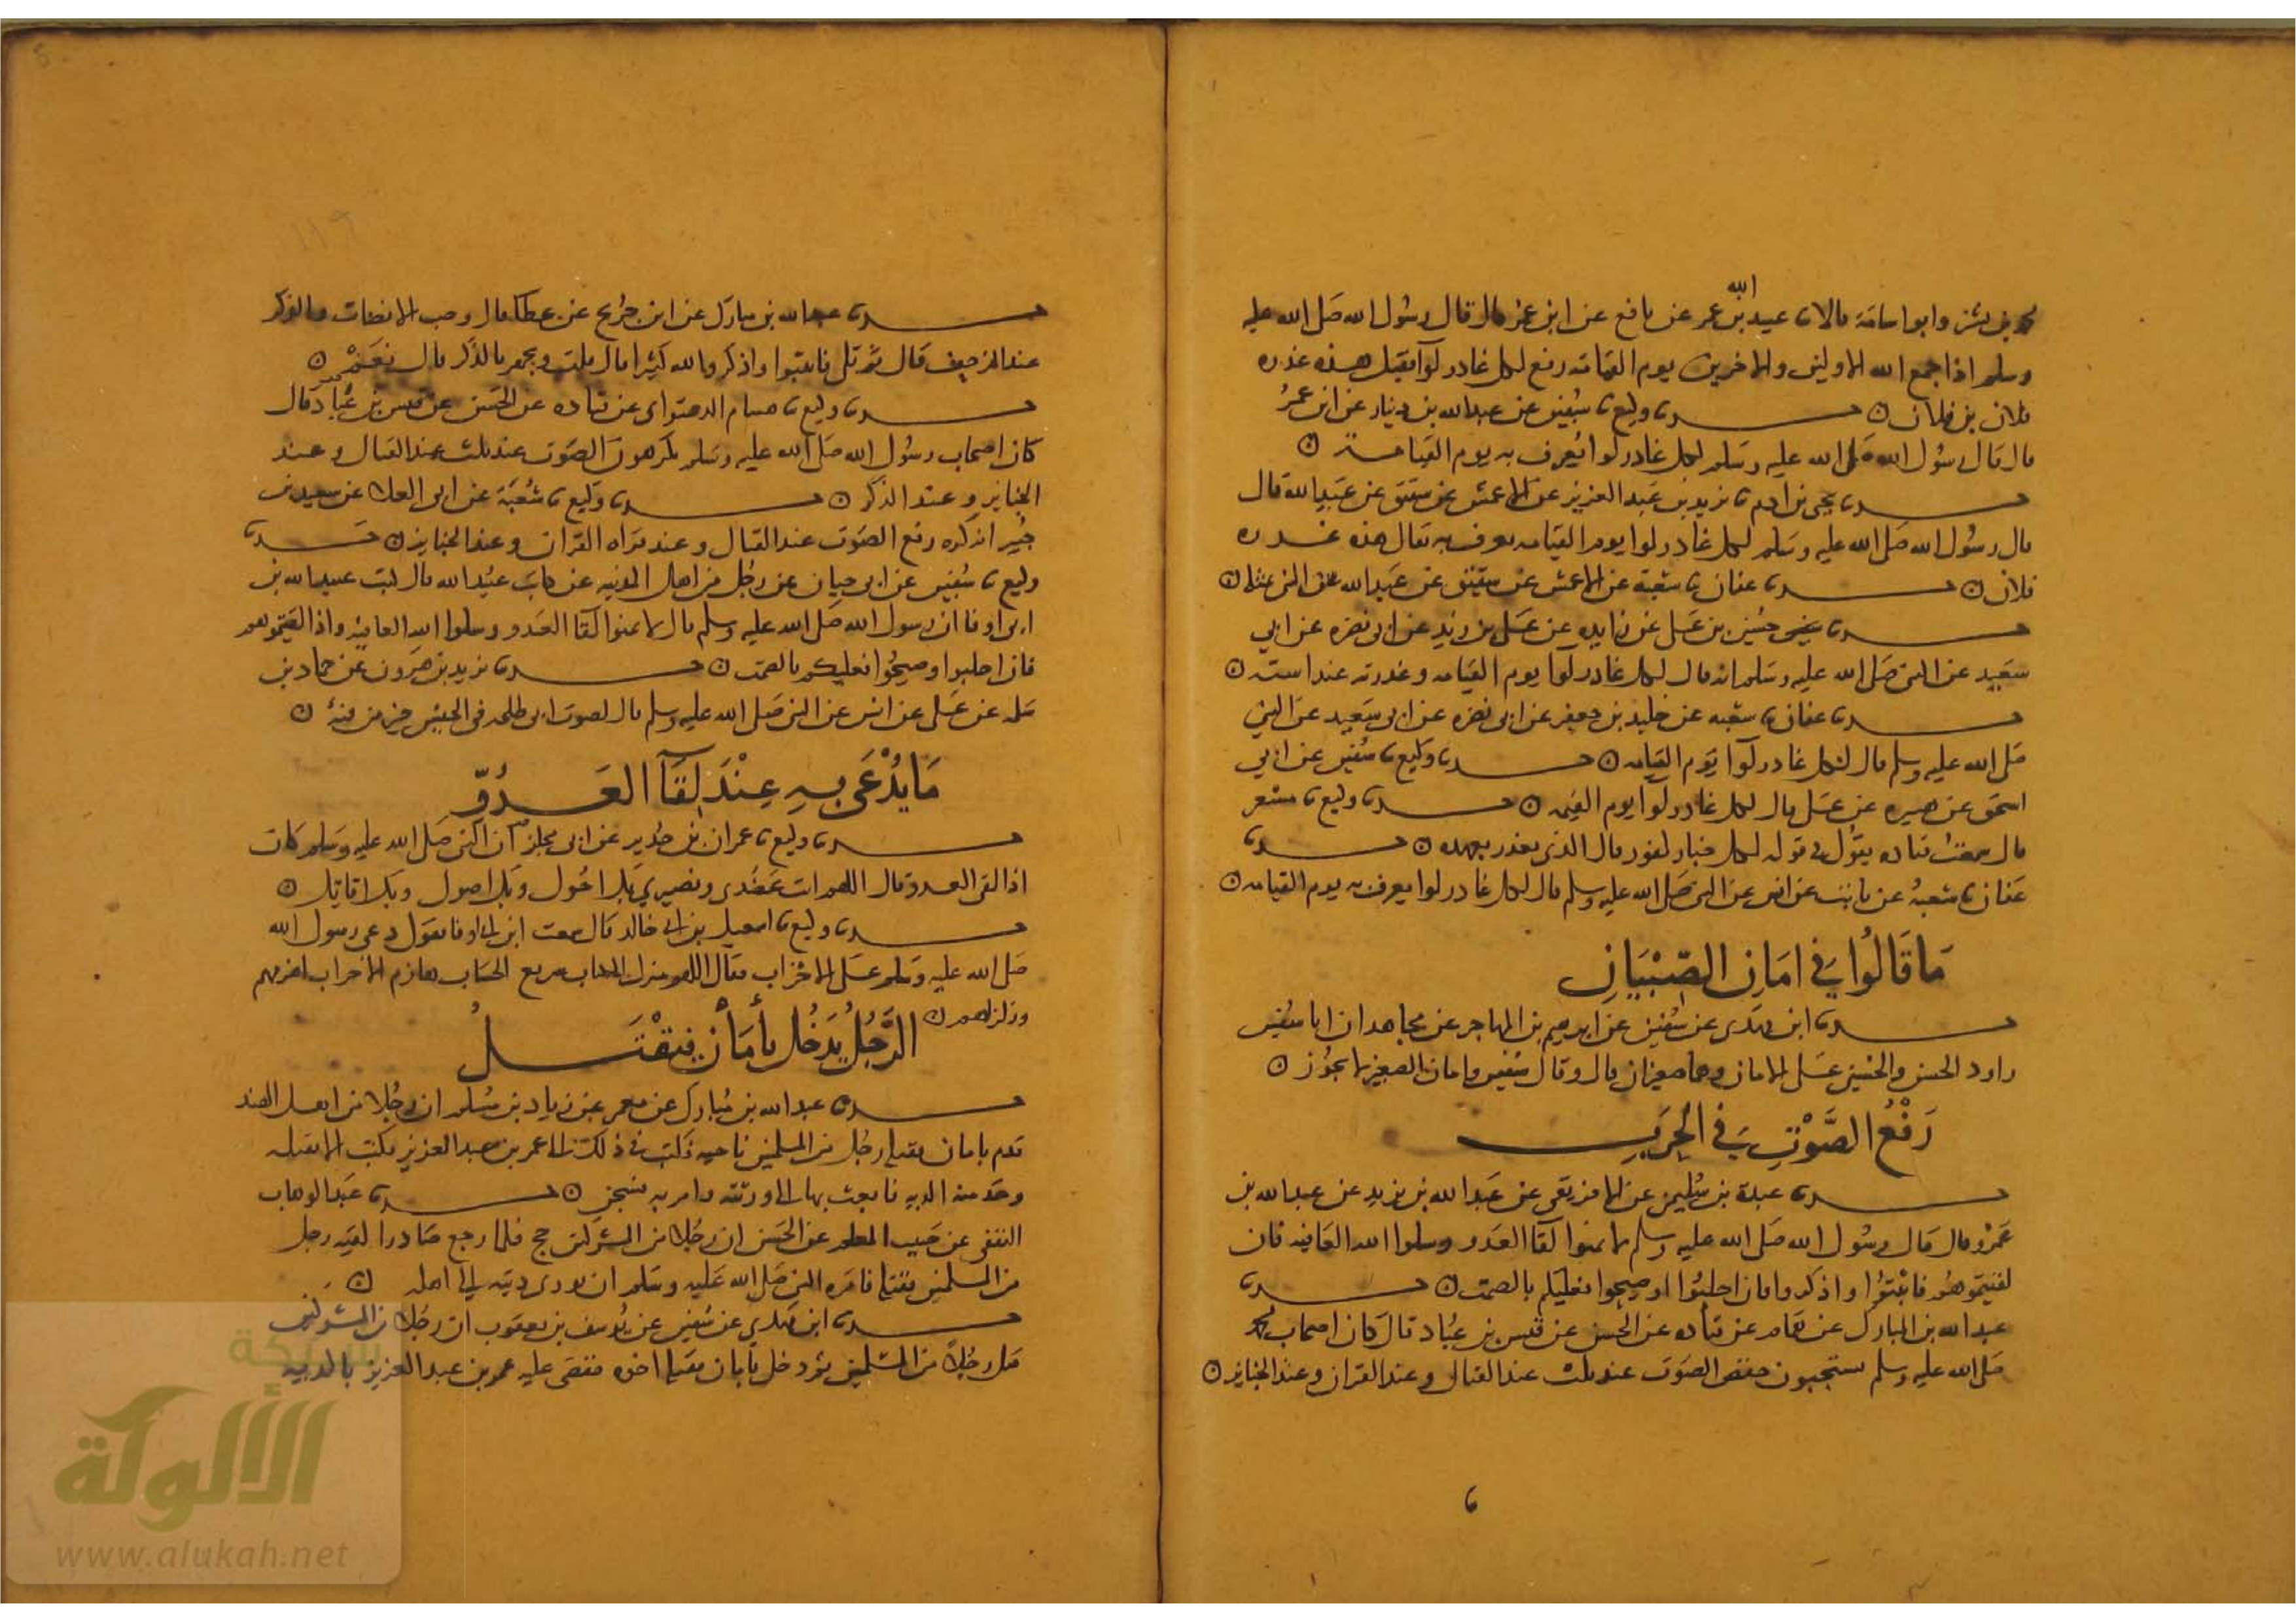 محمد بن بشر وابو اسامة قالا نا عبيد الله بن عمر عن نافع عن ابن عمر قال قال رسول الله صلى الله عليه
وسلم اذا جمع الله الاولين والاخرين يوم القيامة رفع لكل غادر لوا فقيل هذه غدره
فلان بن فلان ن حدثنا وكيع نا سفين عن عبدالله بن دينار عن ابن عمر
قال قال رسول الله صلى الله عليه وسلم لكل غادر لوا يعرف به يوم القيامة ن
حدثنا يحيى بن ادم نا يزيد بن عبد العزيز عن الاعمش عن شقيق عن عبد الله قال
قال رسول الله صلى الله عليه وسلم لكل غادر لوا يوم القيامه يعرف به يقال هذه غدره
فلان ن حدثنا عفان نا شعبة عن الاعمش عن شقيق عن عبد الله عن النبي مثله ن
حدثنا حسين بن على عن زايده عن على بن زيد عن ابى نضره عن ابي
سعيد عن النبى صلى الله عليه وسلم انه قال لكل غادر لوا يوم القيامه وغدرته عند استه ن
حدثنا عفان نا شعبه عن خليد بن جعفر عن ابى نضره عن ابى سعيد عن النبي
صلى الله عليه وسلم قال لكل غادر لوا يوم القيامه ن حدثنا وكيع نا سفين عن ابي
اسحق عن هبيره عن على قال لكل غادر لوا يوم القيمه ن حدثنا وكيع نا مسعر
قال سمعت قتاده يقول في قوله لكل ختار كفور قال الذى يغدر بعهده ن حدثنا
عفان نا شعبة عن ثابت عن انس عن النبى صلى الله عليه وسلم قال لكل غادر لوا يعرف به يوم القيامه ن
ما قالوا في امان الصبيان
حدثنا ابن مهدى عن سفين عن ابرهيم بن المهاجر عن مجاهد ان ابا سفين
راود الحسن والحسين على الامان وهما صغيران قال وقال سفين وامان الصغير لا يجوز ن
رفع الصوت في الحرب
حدثنا عبدة بن سليمن عن الافريقى عن عبد الله بن يزيد عن عبد الله بن
عمرو قال قال رسول الله صلى الله عليه وسلم لا تمنوا لقا العدو وسلوا الله العافيه فان
لقيتموهم فاثبتوا واذكروا فان اجلبوا او صيحوا فعليكم بالصمت ن حدثنا
عبد الله بن المبارك عن همام عن قتاده عن الحسن عن قيس بن عباد قال كان اصحاب محمد
صلى الله عليه وسلم يستحبون خفض الصوت عند ثلث عند القتال وعند القران وعند الجنايز ن
حدثنا عبد الله بن مبارك عن ابن جريج عن عطا قال وجب الانصات والذكر
عند الزحف قال ثم تلى فاثبتوا واذكروا الله كثيرا قال قلت ويجهر بالذكر قال نعم ن
حدثنا وكيع نا هشام الدستواى عن قتاده عن الحسن عن قيس بن عباد قال
كان اصحاب رسول الله صلى الله عليه وسلم يكرهون الصوت عند ثلث عند القتال وعند
الجنايز وعند الذكر ن حدثنا وكيع نا شعبة عن ابى العلا عن سعيد بن
جبير انه كره رفع الصوت عند القتال وعند قراه القران وعند الجنايز ن حدثنا
وكيع نا سفين عن ابى حيان عن رجل من اهل المدينه عن كاتب عبيد الله قال كتب عبد الله بن
ابى اوفا ان رسول الله صلى الله عليه وسلم قال لا تمنوا لقا العدو وسلوا الله العافيه واذا لقيتموهم
فان اجلبوا وصيحوا فعليكم بالصمت ن حدثنا يزيد بن هرون عن حماد بن
سلمه عن على عن انس عن النبى صلى الله عليه وسلم قال لصوت ابى طلحه فى الجيش خير من فئة ن
ما يدعى به عند لقآ العدو
حدثنا وكيع نا عمران بن حدير عن ابى مجلز ان النبى صلى الله عليه وسلم كان
اذا لقى العدو قال اللهم انت عضدى ونصيري بك احول وبك اصول وبك اقاتل ن
حدثنا وكيع نا اسمعيل بن ابى خالد قال سمعت ابن ابى اوفا يقول دعى رسول الله
صلى الله عليه وسلم على الاحزاب فقال اللهم منزل الكتاب سريع الحساب هازم الاحزاب اهزمهم
وزلزلهم ن
الرجل يدخل بأمان فيقتل
حدثنا عبد الله بن مبارك عن معمر عن زياد بن مسلم ان رجلا من اهل الهند
قدم بامان فقتله رجل من المسلمين باخيه فكتب في ذلك الى عمر بن عبد العزيز فكتب لا تقتله
وخذ منه الديه فابعث بها الى ورثته وامر به فسجن ن حدثنا عبد الوهاب
الثقفى عن حبيب المعلم عن الحسن ان رجلا من المشركين حج فلما رجع صادرا لقيه رجل
من المسلمين فقتله فامره النبى صلى الله عليه وسلم ان يودى ديته الى اهله ن
حدثنا ابن مهدي عن سفين عن يوسف بن يعقوب ان رجلا من المشركين
قتل رجلا من المسلمين ثم دخل بامان فقتله اخوه فقضى عليه عمر بن عبد العزيز بالديه
شبكة
الألوكة
www.alukah.net